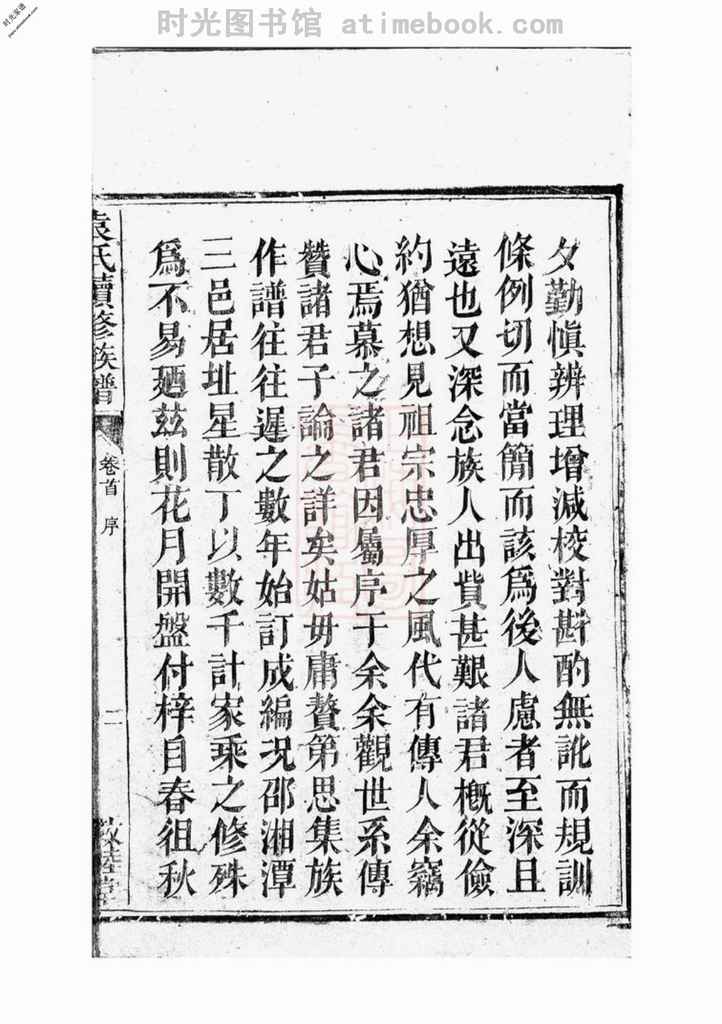 时光图书馆 - atimebook.com
时光家谱
夕勤慎辨理增減校對斟酌無訛而規訓
條例切而當簡而該爲後人慮者至深且
遠也又深念族人出貲甚艱諸君槪從儉
約猶想見祖宗忠厚之風代有傳人余竊
心焉慕之諸君因屬序于余余觀世系傳
贊諸君子論之詳矣姑毋庸贅第思集族
作譜往往遲之數年始訂成編況邵湘潭
三邑居址星散丁以數千計家乘之修殊
爲不易廼茲則花月開盤付梓自春徂秋
袁氏續修族譜
卷首 序
二
敦睦堂